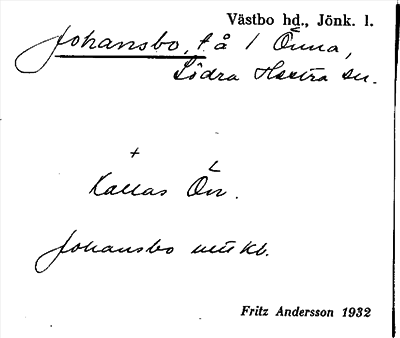 Västbo hd., Jönk. l.
Johansbo, t. å 1 Önna,
Södra Hestra sn.
Kallas Ön.
Johansbo ute kb.
Fritz Andersson 1932